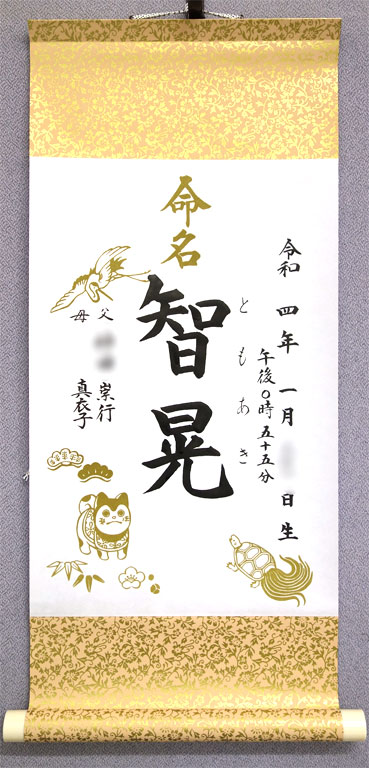 命名
令和四年一月 日生
午後〇時五十五分
ともあき
智晃
父 崇行
母 真衣子